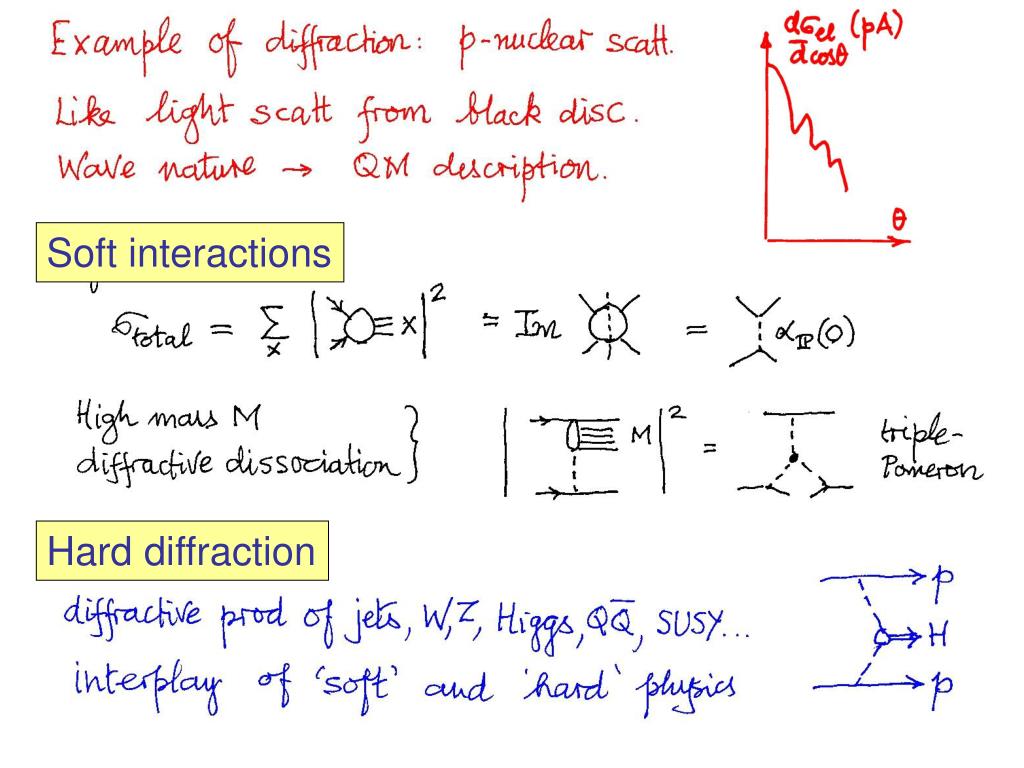 Example of diffraction: p-nuclear scatt.
dσel (pA)
dcosθ
Like light scatt from black disc.
Wave nature → QM description.
θ
Soft interactions
σtotal = Σ X | X |² = Im = αIP(0)
High mass M
diffractive dissociation } | M |² = triple-
Pomeron
Hard diffraction
diffractive prod of jets, W, Z, Higgs, QQ̅, SUSY...
interplay of 'soft' and 'hard' physics
p
H
p